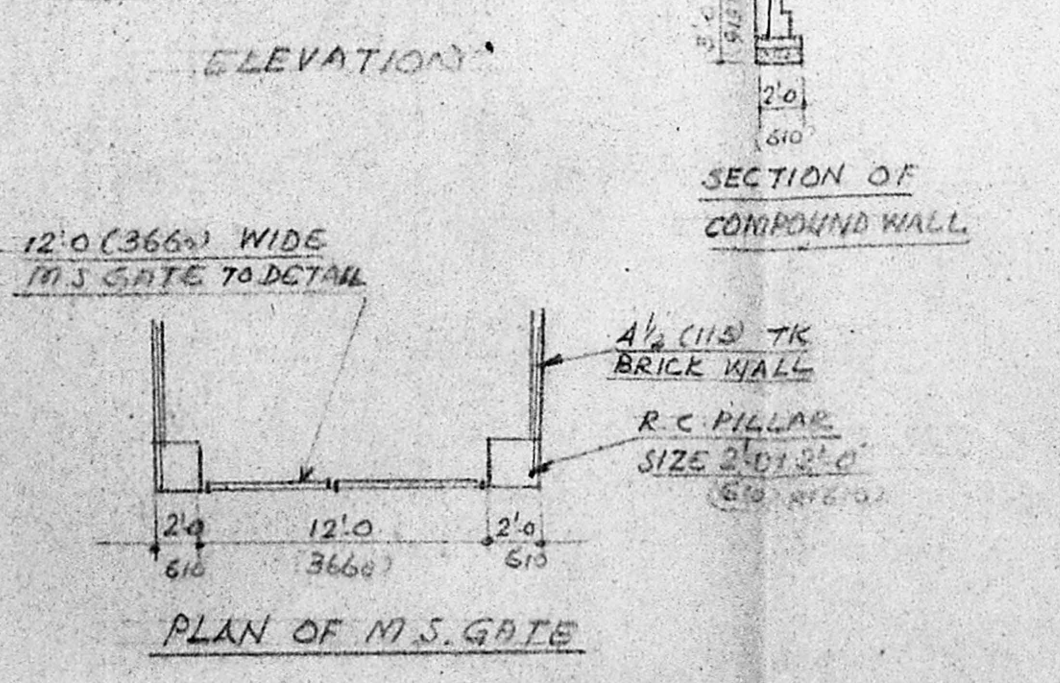 ELEVATION
2'.0
610
SECTION OF
COMPOUND WALL
12'.0 (3660) WIDE
M S GATE TO DETAIL
4½ (115) TK
BRICK WALL
R.C. PILLAR
SIZE 2'.0 x 2'.0"
(610 x 610)
2'.0 12'.0 2'.0
610 (3660) 610
PLAN OF M S. GATE